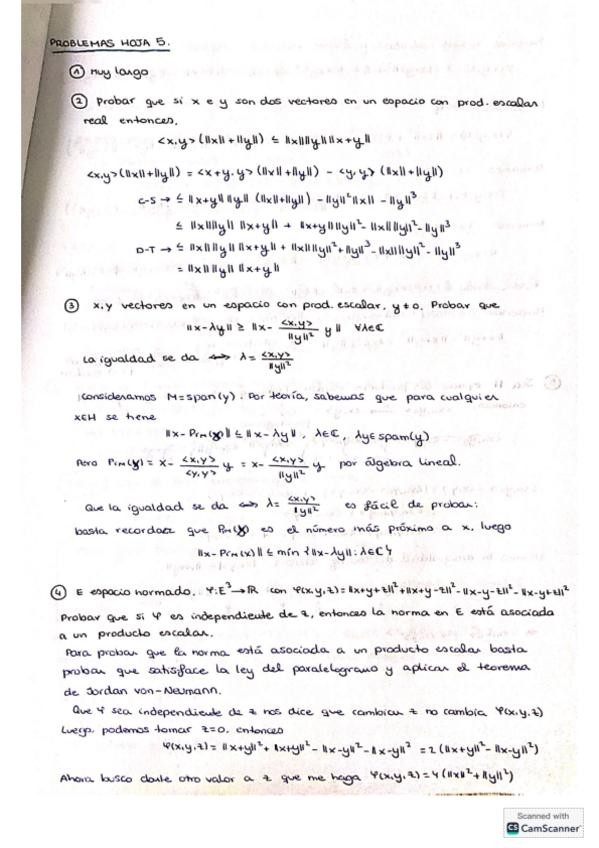 PROBLEMAS HOJA 5.
① Muy largo
② Probar que si x e y son dos vectores en un espacio con prod. escalar
real entonces,
<x,y>(||x||+||y||) ≤ ||x||||y||||x+y||
<x,y>(||x||+||y||) = <x+y,y>(||x||+||y||) - <y,y>(||x||+||y||)
C-S → ≤ ||x+y||||y||(||x||+||y||) - ||y||²||x|| - ||y||³
≤ ||x||||y|| ||x+y|| + ||x+y||||y||² - ||x||||y||² - ||y||³
D-T → ≤ ||x||||y||||x+y|| + ||x||||y||² + ||y||³ - ||x||||y||² - ||y||³
= ||x||||y||||x+y||
③ x,y vectores en un espacio con prod. escalar, y≠0, Probar que
||x-λy|| ≥ ||x - <x,y>/||y||² y|| ∀λ∈ℂ
La igualdad se da ⟺ λ = <x,y>/||y||²
Consideramos M=span(y). Por teoría, sabemos que para cualquier
x∈H se tiene
||x-P_M(x)|| ≤ ||x-λy||, λ∈ℂ, λy∈spam(y)
Pero P_M(y) = x - <x,y>/<y,y> y = x - <x,y>/||y||² y por álgebra lineal.
Que la igualdad se da ⟺ λ = <x,y>/||y||² es fácil de probar:
basta recordar que P_M(x) es el número más próximo a x, luego
||x-P_M(x)|| ≤ mín {||x-λy|| : λ∈ℂ}
④ E espacio normado. φ:E³→ℝ con φ(x,y,z)=||x+y+z||²+||x+y-z||²-||x-y-z||²-||x-y+z||²
Probar que si φ es independiente de z, entonces la norma en E está asociada
a un producto escalar.
Para probar que la norma está asociada a un producto escalar basta
probar que satisface la ley del paralelogramo y aplicar el teorema
de Jordan von-Neumann.
Que φ sea independiente de z nos dice que cambiar z no cambia φ(x,y,z)
Luego, podemos tomar z=0, entonces
φ(x,y,z) = ||x+y||² + ||x+y||² - ||x-y||² - ||x-y||² = 2(||x+y||² - ||x-y||²)
Ahora busco darle otro valor a z que me haga φ(x,y,z)=4(||x||²+||y||²)
Scanned with
CS CamScanner